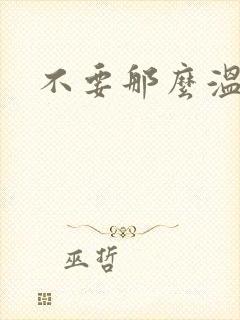 不要那麼溫
巫哲